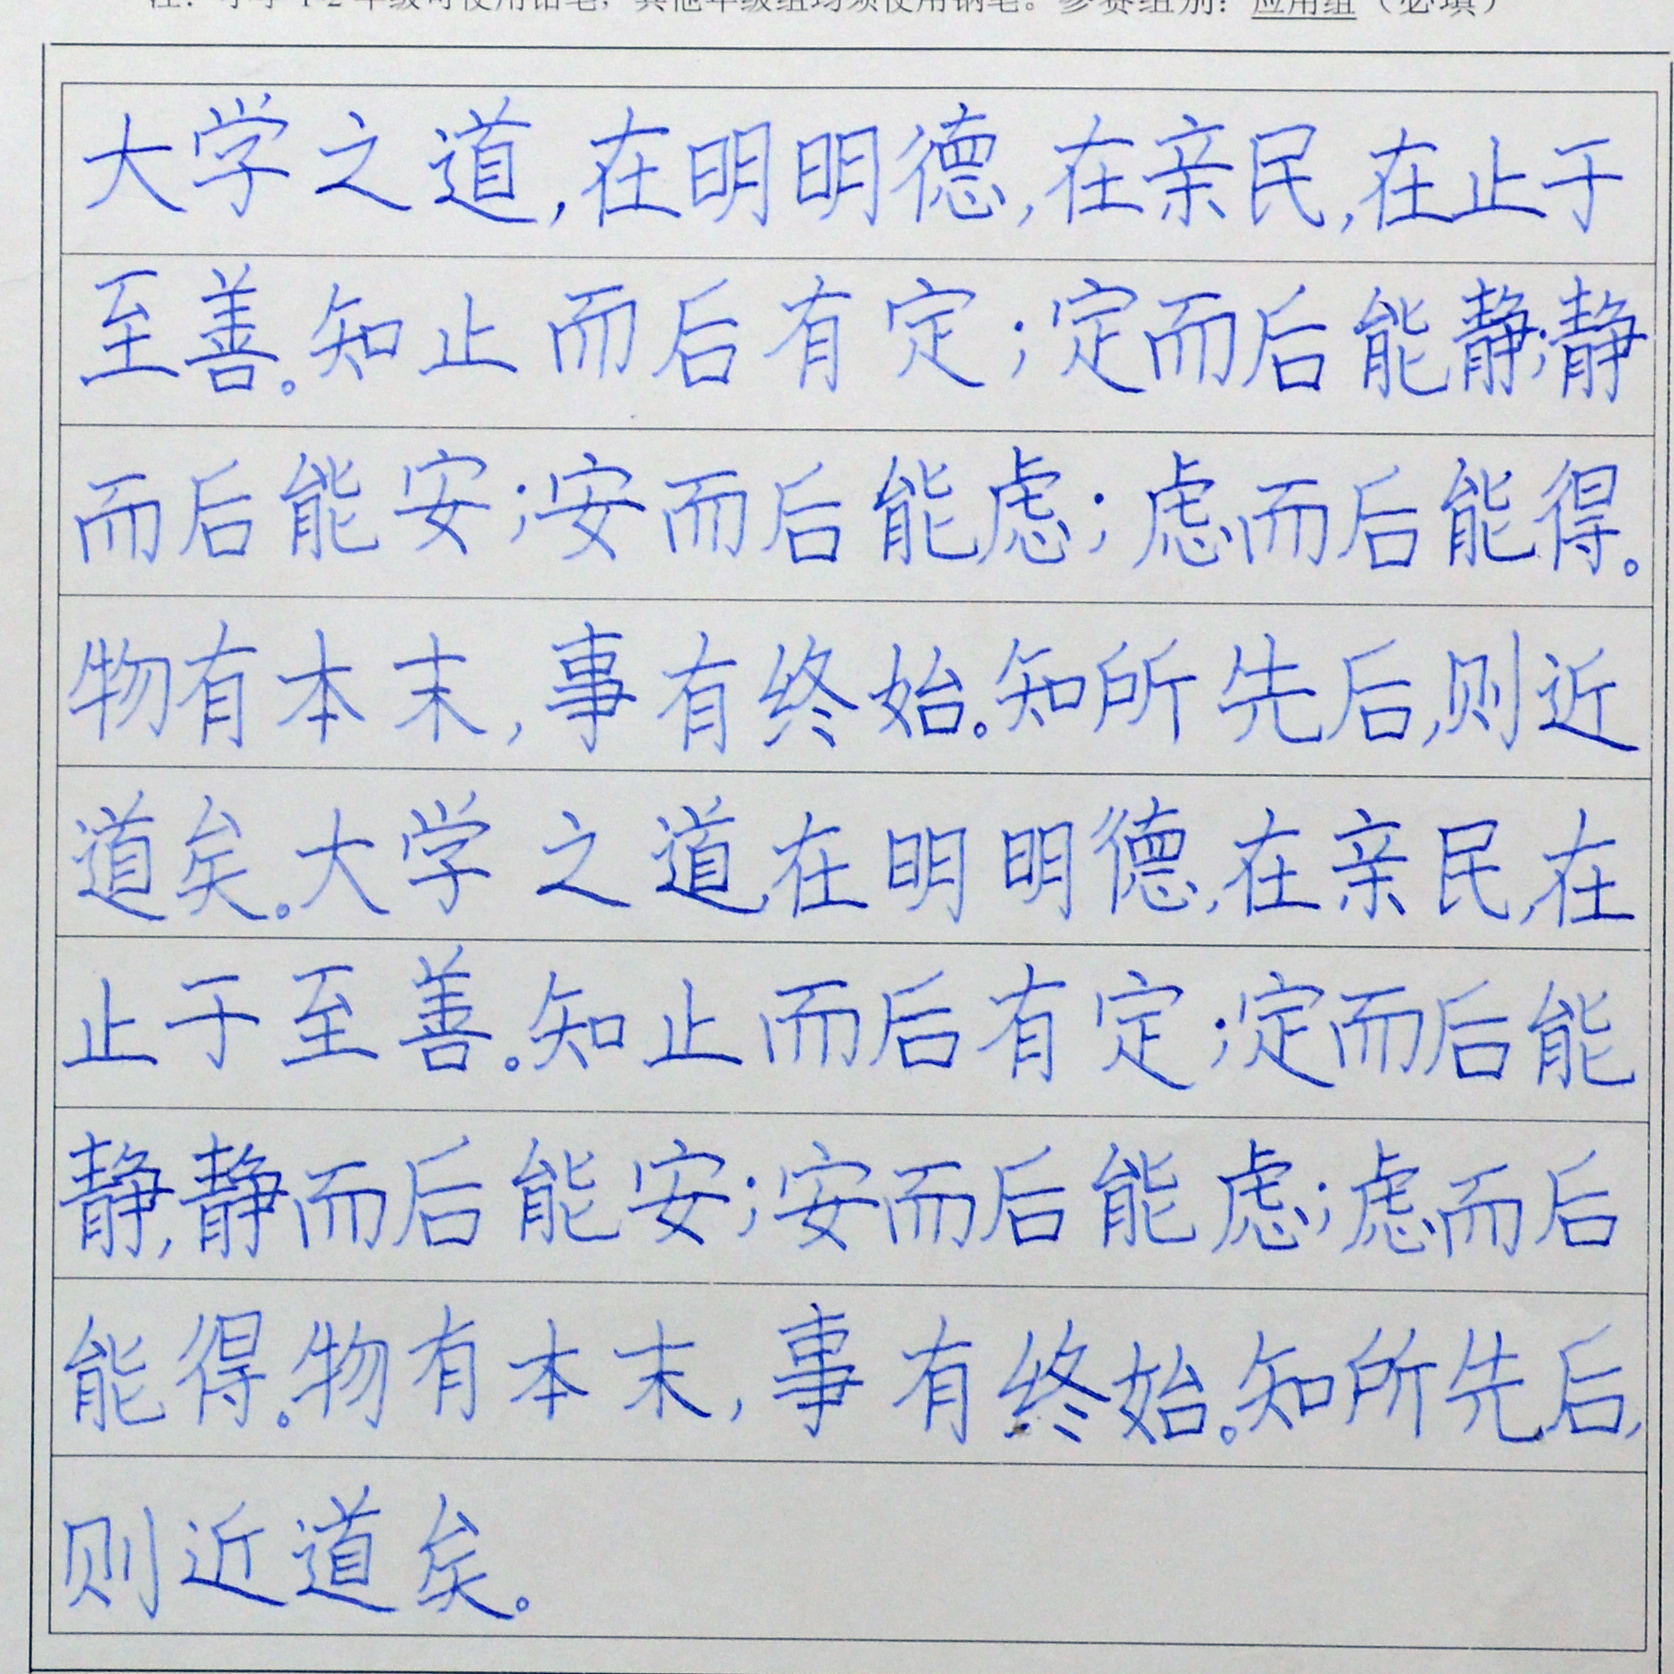 注：小学1-2年级可使用铅笔，其他年级组均须使用钢笔。参赛组别：应用组（必填）
大学之道,在明明德,在亲民,在止于
至善。知止而后有定;定而后能静;静
而后能安;安而后能虑;虑而后能得。
物有本末,事有终始。知所先后,则近
道矣。大学之道,在明明德,在亲民,在
止于至善。知止而后有定;定而后能
静,静而后能安;安而后能虑;虑而后
能得。物有本末,事有终始。知所先后,
则近道矣。